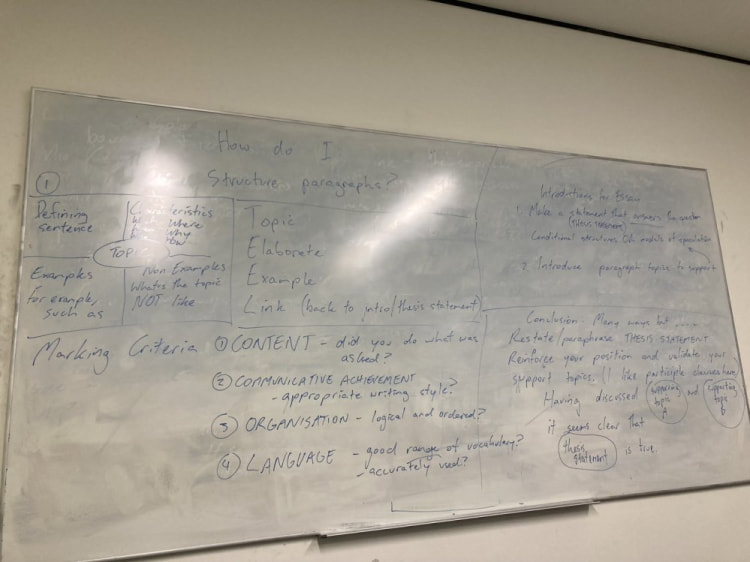 How do I
① Structure paragraphs?
Defining
sentence
Characteristics
What where
Why
How
TOPIC
Examples
for example,
such as
Non Examples
Whats the topic
NOT like
Topic
Elaborate
Example
Link (back to intro/thesis statement)
Introductions for Essay
1. Make a statement that answers the question
(THESIS STATEMENT)
Conditional structures OR modals of speculation
2. Introduce paragraph topics to support
Marking Criteria
① CONTENT - did you do what was
asked?
② COMMUNICATIVE ACHIEVEMENT
- appropriate writing style?
③ ORGANISATION - logical and ordered?
④ LANGUAGE - good range of vocabulary?
- accurately used?
Conclusion - Many ways but
Restate/paraphrase THESIS STATEMENT
Reinforce your position and validate your
support topics. (I like participle clauses here)
Having discussed supporting topic A and supporting topic B
it seems clear that
thesis statement is true.